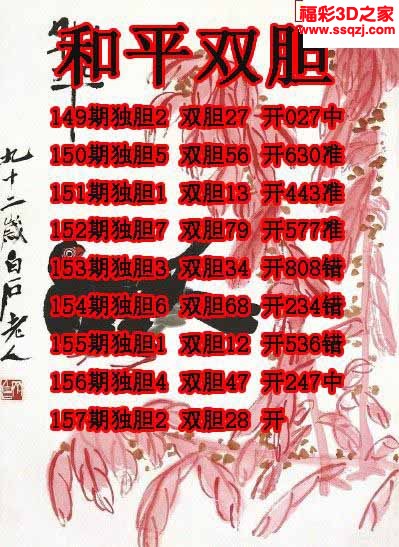 福彩3D之家
www.ssqzj.com
和平双胆
149期独胆2 双胆27 开027中
150期独胆5 双胆56 开630准
151期独胆1 双胆13 开443准
152期独胆7 双胆79 开577准
153期独胆3 双胆34 开808错
154期独胆6 双胆68 开234错
155期独胆1 双胆12 开536错
156期独胆4 双胆47 开247中
157期独胆2 双胆28 开
九十二歲白石老人